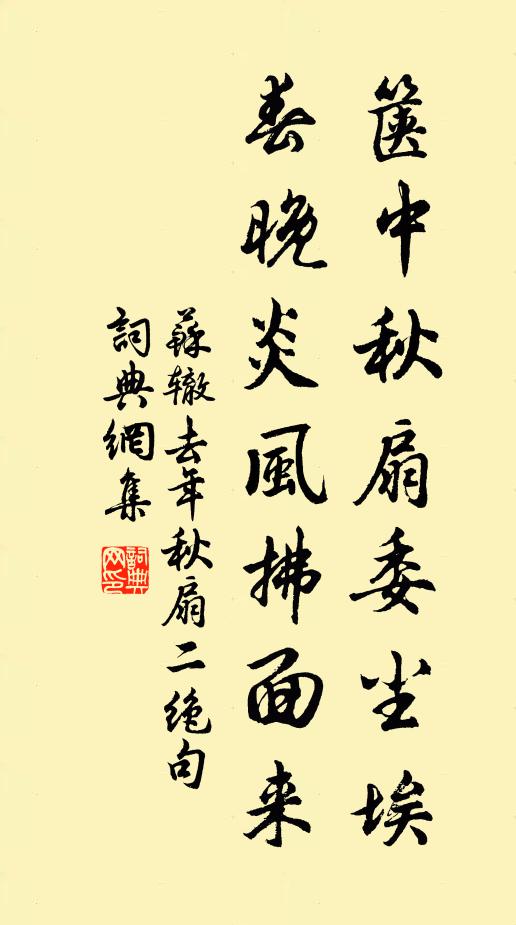 箧中秋扇委尘埃
春晚炎風拂面来
蘇辙去年秋扇二绝句
詞典網集
詞典网印